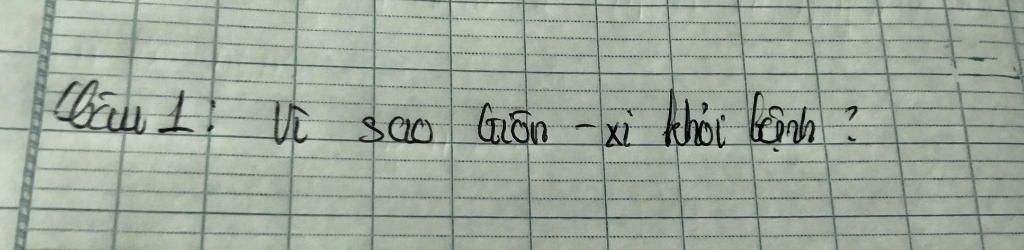 Câu 1: Vì sao Giôn-xi khỏi bệnh?